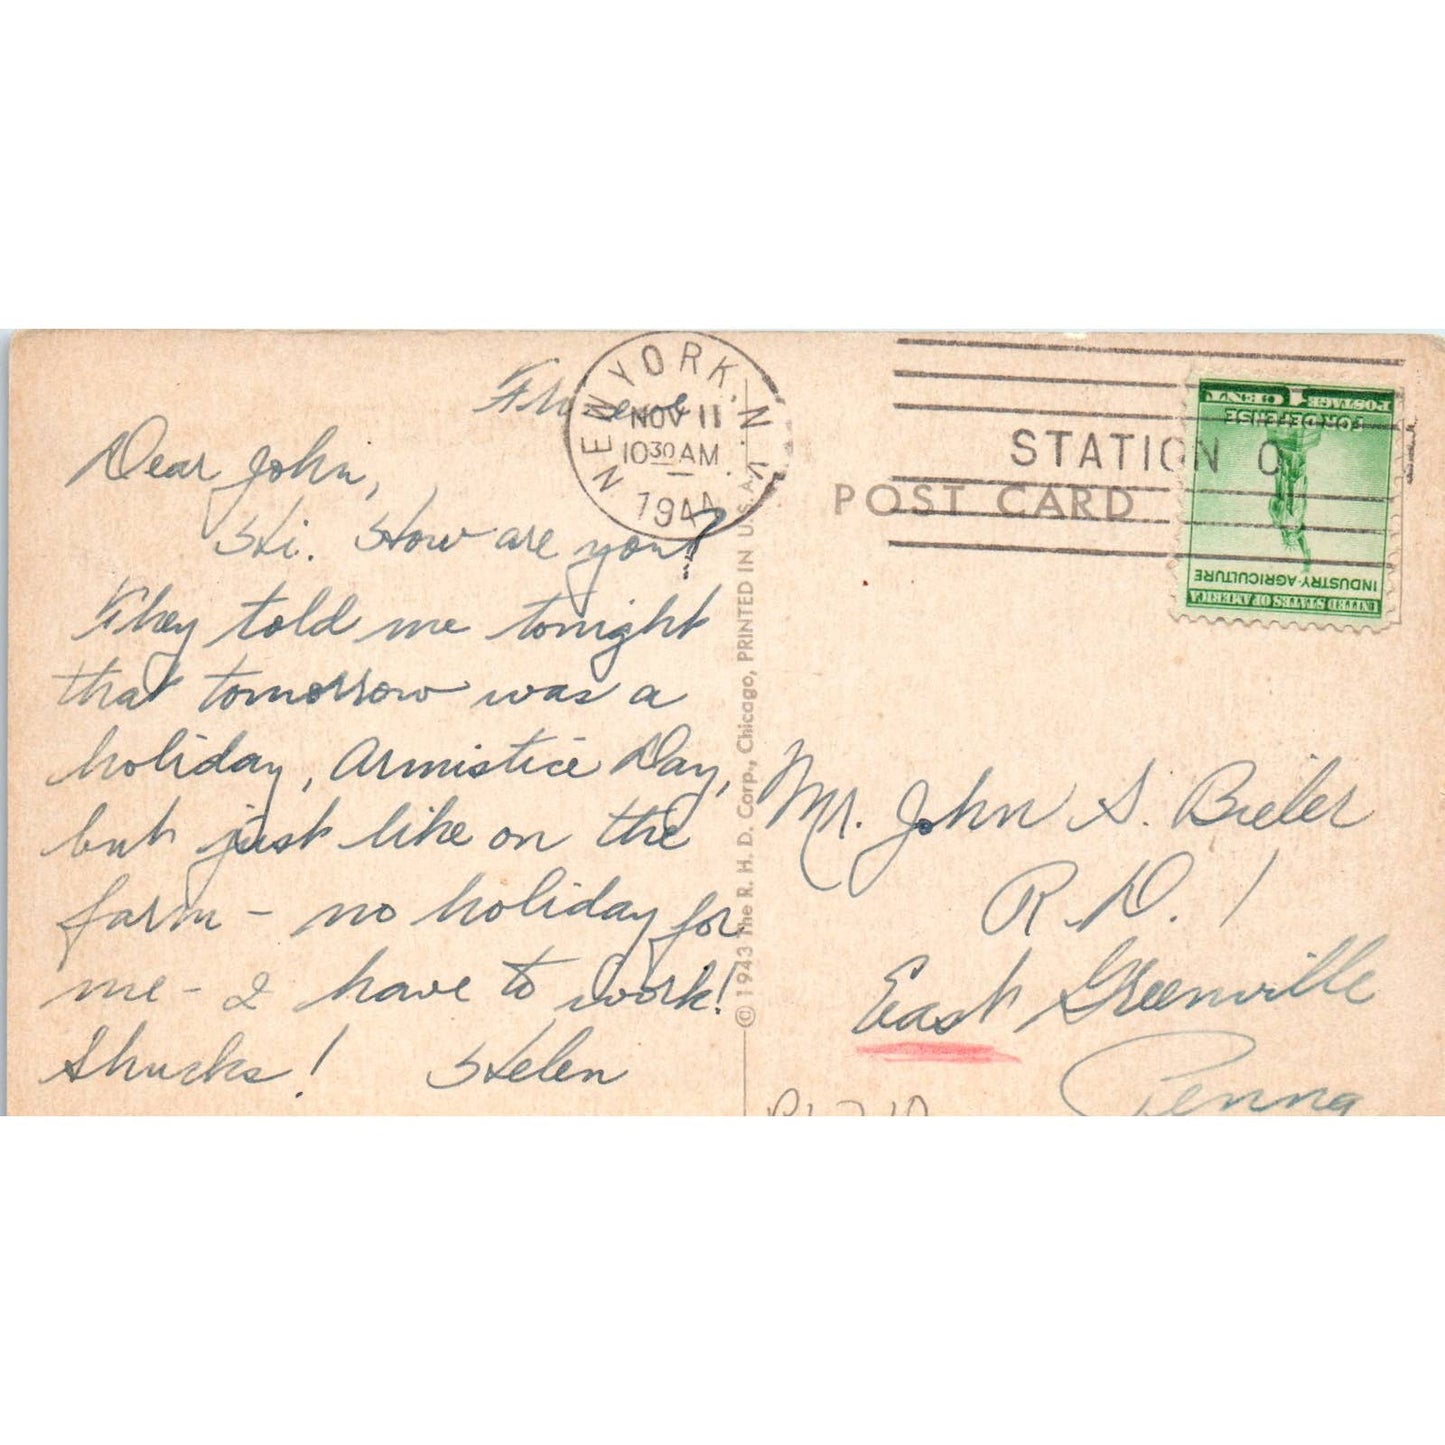 Dear John,
Hi. How are you?
They told me tonight
that tomorrow was a
holiday, Armistice Day,
but just like on the
farm - no holiday for
me - I have to work!
Shucks! Helen
NEW YORK, N.Y.
NOV 11
10 30 AM
1944
STATION O
POST CARD
1 CENT POSTAGE
FOR DEFENSE
INDUSTRY-AGRICULTURE
UNITED STATES OF AMERICA
© 1943 The R. H. D. Corp., Chicago, PRINTED IN U. S. A.
Mr. John S. Bieler
R.D. 1
East Greenville
Penna